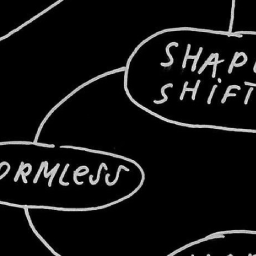 SHAP
SHIFT
ORMLESS